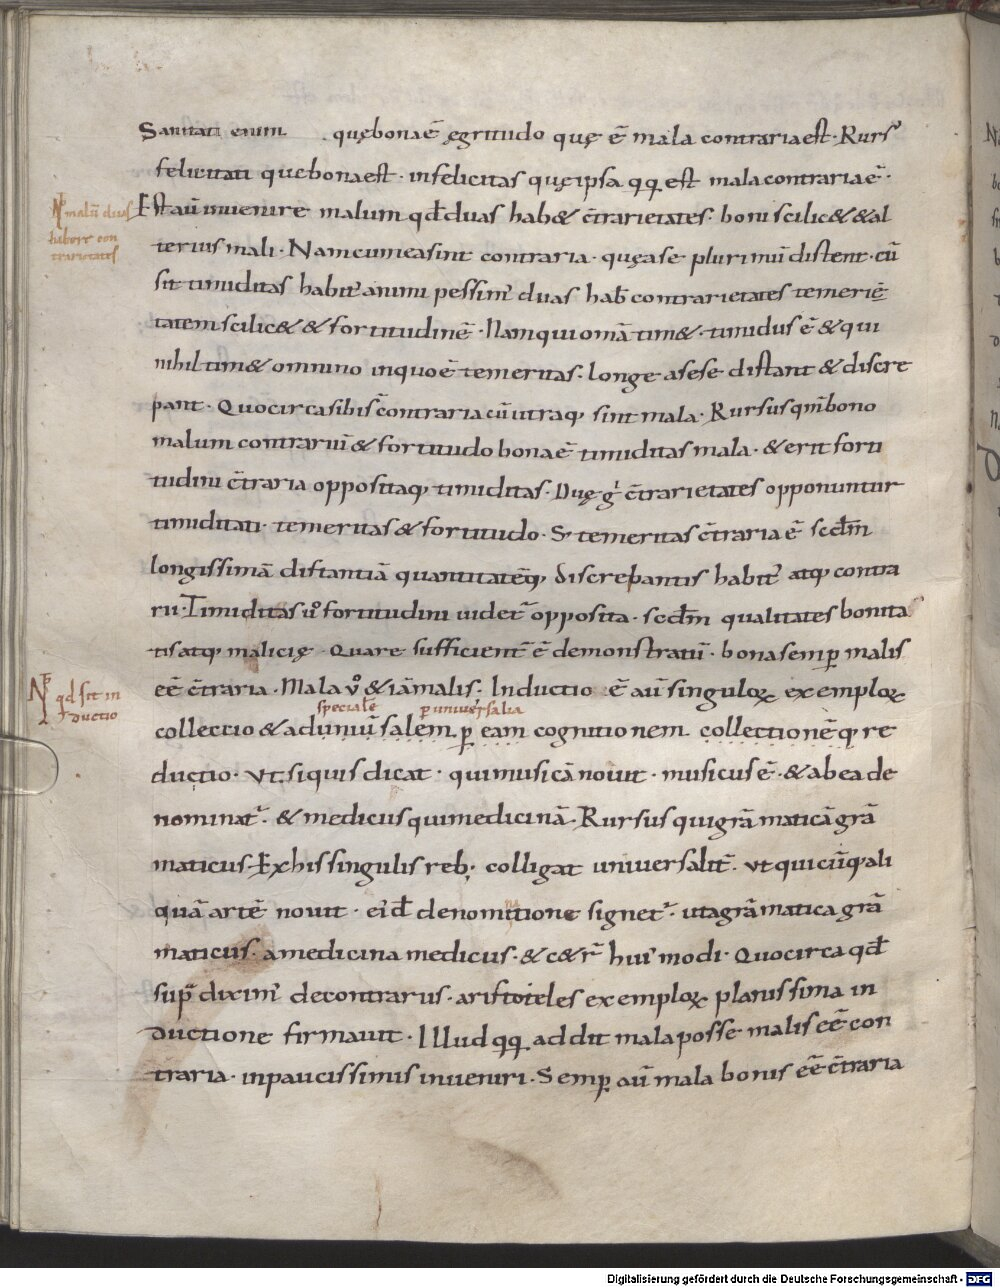 Sanitati enim quę bona ē̄ ęgritudo quę ē̄ mala contraria est · Rurs᾽
felicitati que bona est · infelicitas quę ipsa qq est mala contraria ē̄ ·
N malū duas
habere con
trarietates
Est aū inuenire malum qđ duas hab& c̄trarietates · boni scilic& & al
terius mali · Nam cum ea sint contraria · quę a se plurimū distent · cū
sit timiditas habit᾽ animi pessim᾽ duas hab& contrarietates temerie
tatem scilic& & fortitudinē · Nam qui omā tim& · timidus ē̄ & qui
nihil tim& omnino in quo ē̄ temeritas · longe a sese distant & discre
pant · Quocirca sibi s̄ contraria cū utraq, sint mala · Rursus qm̄ bono
malum contrariū & fortitudo bona ē̄ timiditas mala · & erit forti
tudini c̄traria oppositaq, timiditas · Duę g᾽ c̄trarietates opponuntur
timiditati · temeritas & fortitudo · S; temeritas c̄traria ē̄ scd̄m
longissimā distantiā quantitatēq, discrepantis habit᾽ atq, contra
rii · Timiditas u᾽ fortitudini uidet᾽ opposita · scd̄m qualitates bonita
tis atq, malicię · Quare sufficient᾽ ē̄ demonstratū · bona semp malis
eē c̄traria · Mala v᾽ & iā malis · Inductio ē̄ aū singulox exemplox
N qd sit in
ductio
speciale per universalia
collectio & ad uniūsalem p eam cognitionem collectionēq; re
ductio · Vt si quis dicat · qui musicā nouit · musicus ē̄ · & ab ea de
nominat᾽ · & medicus qui medicinā · Rursus qui grāmaticā grā
maticus · Ex his singulis reb; colligat uniuersalit᾽ · vt quicūq; ali
quā artē nouit · ei᾽d denomitione signet᾽ · ut a grāmatica grā
na
maticus · a medicina medicus · & c&r᾽ hui᾽modi · Quocirca qđ
sup᾽ dixim᾽ de contrariis · aristoteles exemplox planissima in
ductione firmauit · Illud qq addit mala posse malis eē con
traria · in paucissimis inueniri · Semp aū mala bonis eē c̄traria
Digitalisierung gefördert durch die Deutsche Forschungsgemeinschaft - DFG